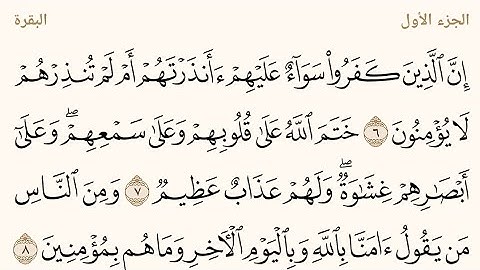 الجزء الأول البقرة
إِنَّ ٱلَّذِينَ كَفَرُوا۟ سَوَآءٌ عَلَيْهِمْ ءَأَنذَرْتَهُمْ أَمْ لَمْ تُنذِرْهُمْ
لَا يُؤْمِنُونَ ٦ خَتَمَ ٱللَّهُ عَلَىٰ قُلُوبِهِمْ وَعَلَىٰ سَمْعِهِمْ ۖ وَعَلَىٰٓ
أَبْصَـٰرِهِمْ غِشَـٰوَةٌ ۖ وَلَهُمْ عَذَابٌ عَظِيمٌ ٧ وَمِنَ ٱلنَّاسِ
مَن يَقُولُ ءَامَنَّا بِٱللَّهِ وَبِٱلْيَوْمِ ٱلْـَٔاخِرِ وَمَا هُم بِمُؤْمِنِينَ ٨